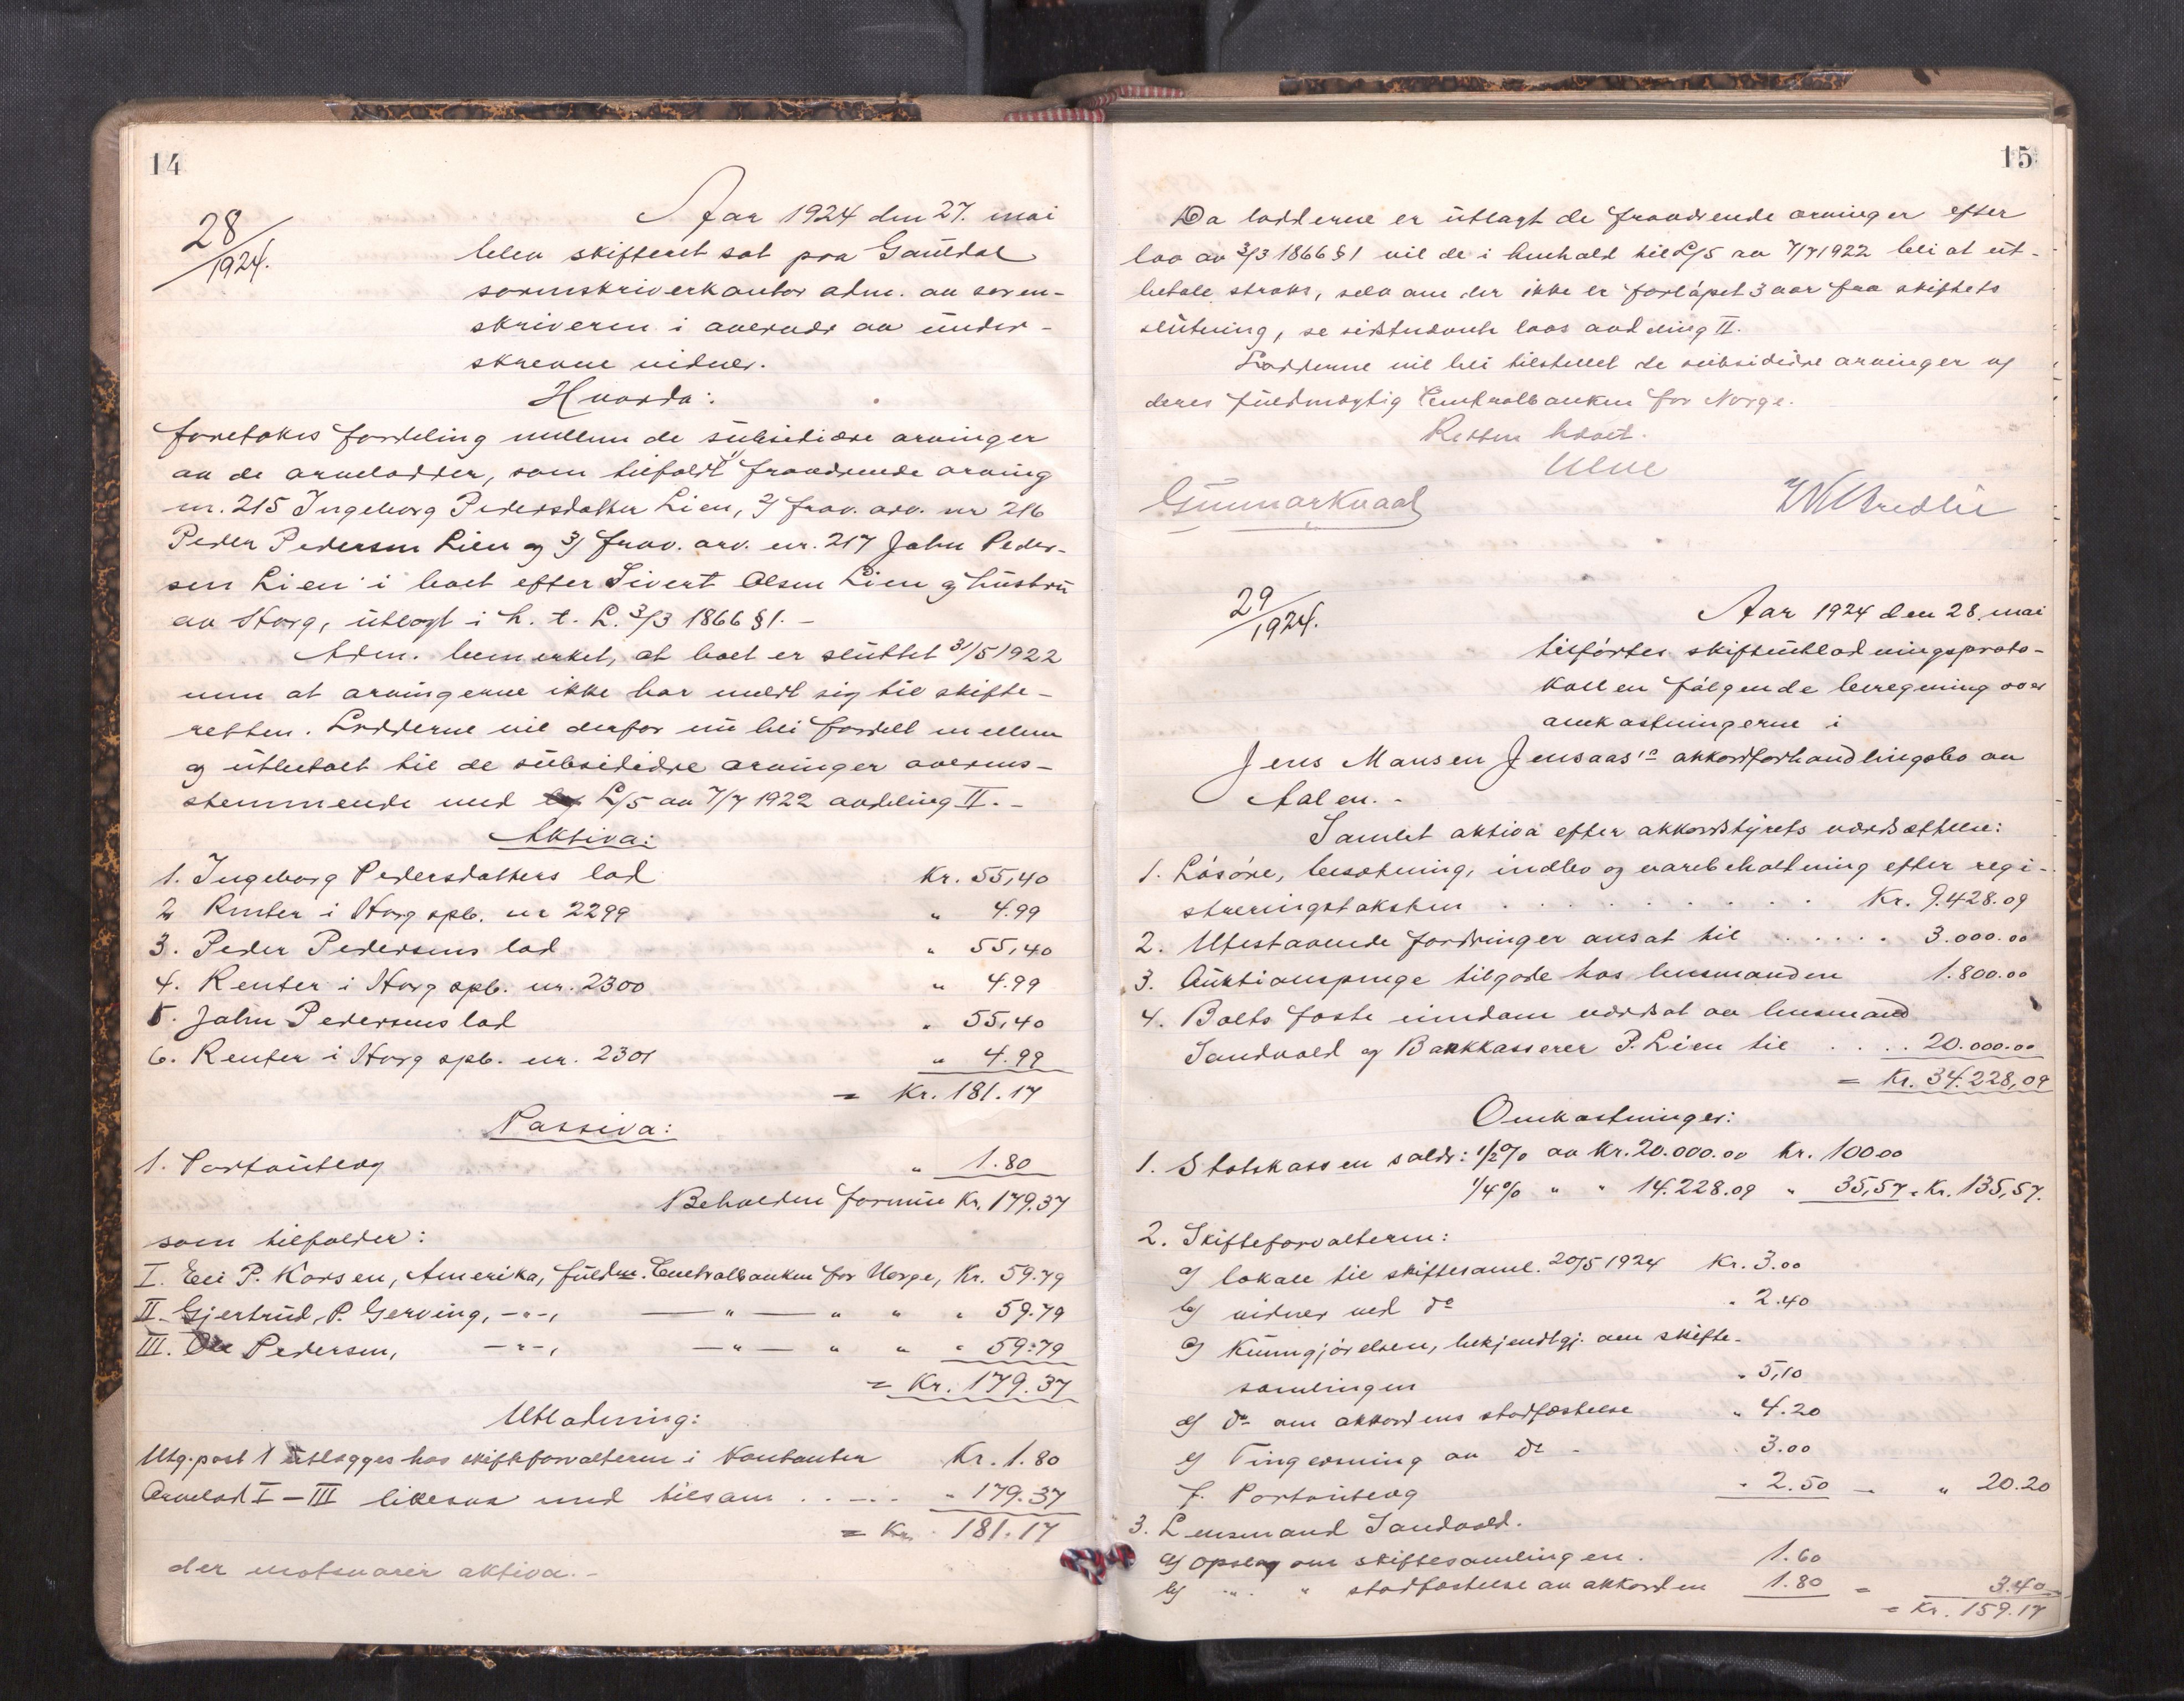 14
28/1924.
Aar 1924 den 27. mai
blev skifteret sat paa Gauldal
sorenskriverkontor adm. av soren-
skriveren i overvær av under-
skrevne vidner.
Hvorda:
foretokes fordeling mellem de subsidiære arvinger
av de arvelodder, som tilfaldt fraværende arving
nr. 215 Ingeborg Pedersdatter Lien, 2/ frav. arv. nr 216
Peder Pedersen Lien og 3/ frav. arv. nr. 217 John Peder-
sen Lien i boet efter Sivert Olsen Lien og hustru
av Horg, utlagt i h. t. L. 3/3 1866 § 1. -
Adm. bemerket, at boet er sluttet 31/5 1922
uten at arvingerne ikke har meldt sig til skifte-
retten. Lodderne vil derfor nu bli fordelt mellem
og utbetalt til de subsidiære arvinger overens-
stemmende med L/5 av 7/7 1922 avdeling II. -
Aktiva:
1. Ingeborg Pedersdatters lod Kr. 55,40
2 Renter i Horg spb. nr 2299 " 4.99
3. Peder Pedersens lod " 55,40
4. Renter i Horg spb. nr. 2300 " 4.99
5. John Pedersens lod " 55,40
6. Renter i Horg spb. nr. 2301 " 4.99
= Kr. 181.17
Passiva:
1. Portoutlæg " 1.80
Beholden formue Kr. 179.37
som tilfalder:
I. Eli P. Korsen, Amerika, fuldm. Centralbanken for Norge, Kr. 59.79
II. Gjertrud P. Gerving, -"-, — " — " " " 59.79
III. Ole Pedersen, -"-, — " — " " " 59.79
= Kr. 179.37
Utlodning:
Utg.post 1 utlægges hos skifteforvalteren i kontanter Kr. 1.80
Arvelod I - III likesaa med tilsam. . . . . " 179.37
= Kr. 181.17
der motsvarer aktiva. -
15
Da lodderne er utlagt de fraværende arvinger efter
lov av 3/3 1866 § 1 vil de i henhold til L/5 av 7/7 1922 bli at ut-
betale straks, selv om der ikke er forløpet 3 aar fra skiftets
slutning, se sidstnævnte lovs avdeling II.
Lodderne vil bli tilstillet de subsidiære arvinger ved
deres fuldmægtig Centralbanken for Norge.
Retten hævet.
Ulve
Gunnar Kvaal
29/1924.
Aar 1924 den 28. mai
tilførtes skifteutlodningsproto-
kollen følgende beregning over
omkostningerne i
Jens Mansen Jensaas's akkordforhandlingsbo av
Aalen. -
Samlet aktiva efter akkordstyrets værdsættelse:
1. Løsøre, besætning, indbo og varebeholdning efter regi-
streringstaksten . . . . . . Kr. 9.428.09
2. Utestaaende fordringer ansat til . . . . . 3.000.00
3. Auktionspenge tilgode hos lensmanden 1.800.00
4. Boets faste eiendom værdsat av lensmand
Sandvold og Bankkasserer P. Lien til . . . . 20.000.00
= Kr. 34.228,09
Omkostninger:
1. Statskassen saldr: 1/2% av Kr. 20.000.00 Kr. 100.00
1/4% " " 14.228.09 " 35,57 = Kr. 135,57.
2. Skifteforvalteren:
a/ lokale til skiftesaml. 20/5 1924 Kr. 3.00
b/ vidner ved do " 2.40
c/ Kunngjørelsen, bekjendtgj. om skifte-
samlingen " 5,10
d/ do om akkordens stadfæstelse " 4.20
e/ Tinglæsning av do - 3.00
f. Portoutlæg " 2.50 — " 20.20
3. Lensmand Sandvold.
a/ opslag om skiftesamlingen. 1.60
b/ " " stadfæstelse av akkorden 1.80 = 3.40
= Kr. 159.17